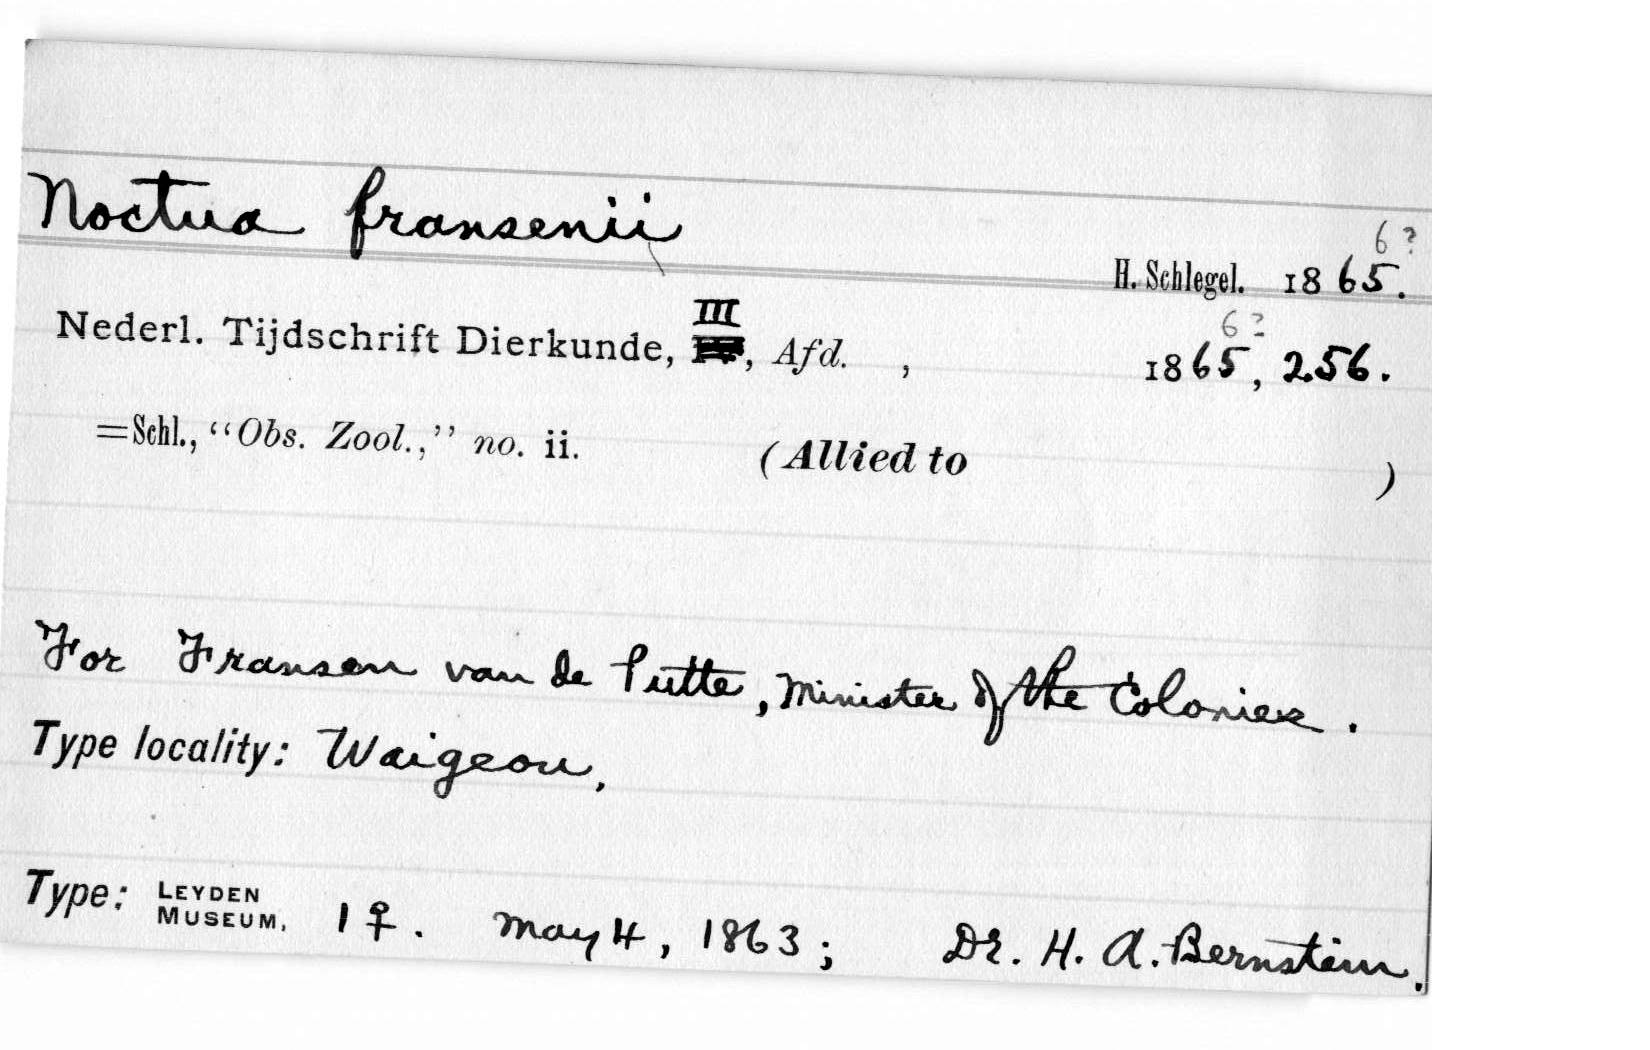 Noctua fransenii
6?
H. Schlegel. 1865.
III
6?
Nederl. Tijdschrift Dierkunde, , Afd. , 1865, 256.
=Schl., “Obs. Zool.,” no. ii. (Allied to )
For Fransen van de Putte, Minister of the Colonies.
Type locality: Waigeou,
Type: LEYDEN MUSEUM, 1♀. May 4, 1863; Dr. H. A. Bernstein.